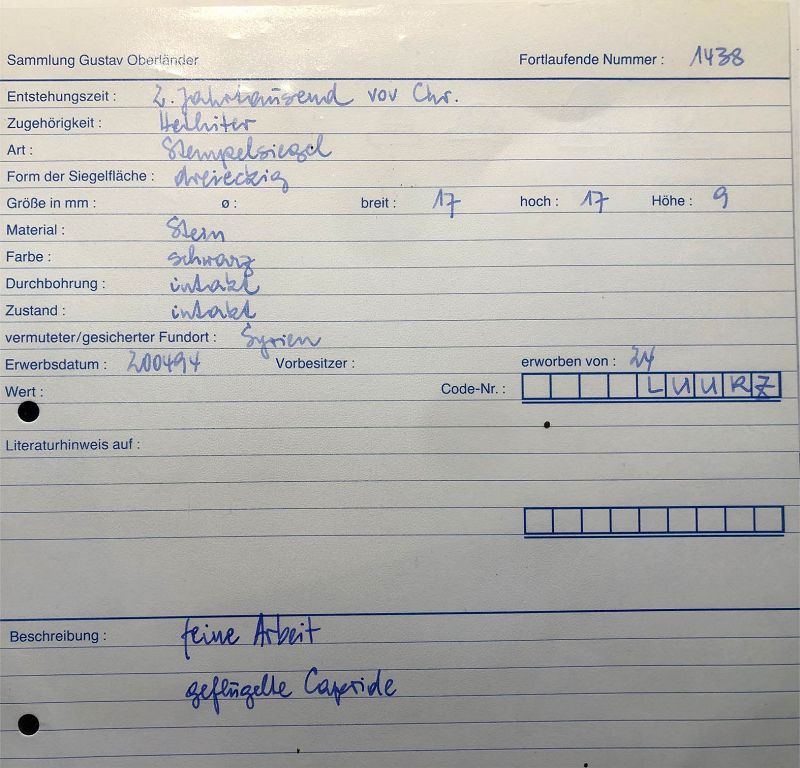 Sammlung Gustav Oberländer Fortlaufende Nummer : 1438
Entstehungszeit : 2. Jahrtausend vor Chr.
Zugehörigkeit : Hethiter
Art : Stempelsiegel
Form der Siegelfläche : dreieckig
Größe in mm : ø : breit : 17 hoch : 17 Höhe : 9
Material : Stein
Farbe : schwarz
Durchbohrung : intakt
Zustand : intakt
vermuteter/gesicherter Fundort : Syrien
Erwerbsdatum : 200494 Vorbesitzer : erworben von : 24
Wert : Code-Nr. : LUURZ
Literaturhinweis auf :
Beschreibung : feine Arbeit
geflügelte Caperide